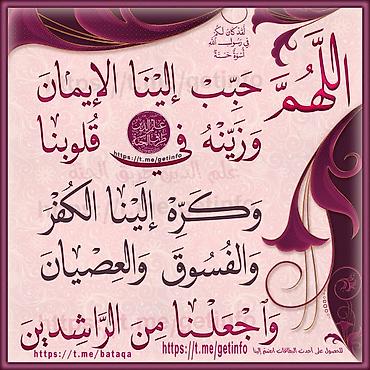 لَقَدْ كَانَ لَكُمْ
فِي رَسُولِ اللَّهِ
أُسْوَةٌ حَسَنَةٌ
اللَّهُمَّ حَبِّبْ إِلَيْنَا الإِيمَانَ
وَزَيِّنْهُ فِي قُلُوبِنَا
https://t.me/getinfo
علم الدين طريق الجنه
وَكَرِّهْ إِلَيْنَا الكُفْرَ
وَالفُسُوقَ وَالعِصْيَان
وَاجْعَلْنَا مِنَ الرَّاشِدِينَ
https://t.me/bataqa
https://t.me/getinfo
للحصول على أحدث البطاقات انضم إلينا